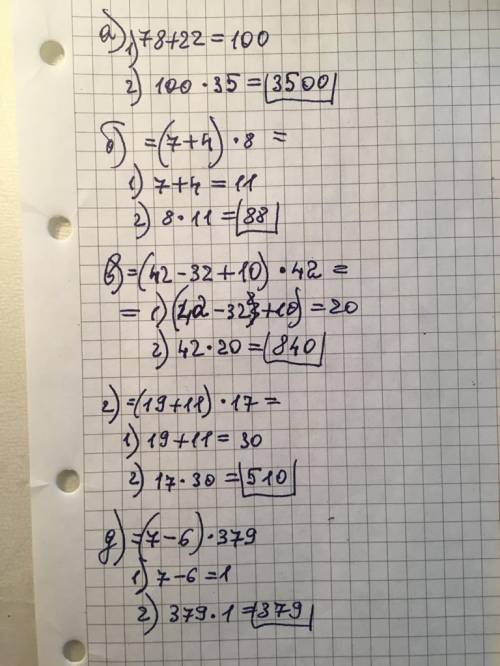 а) 1) 78+22=100
2) 100·35=3500
б) =(7+4)·8=
1) 7+4=11
2) 8·11=88
в) =(42-32+10)·42=
= 1) (42-32+10)=20
2) 42·20=840
г) =(19+11)·17=
1) 19+11=30
2) 17·30=510
д) =(7-6)·379
1) 7-6=1
2) 379·1=379